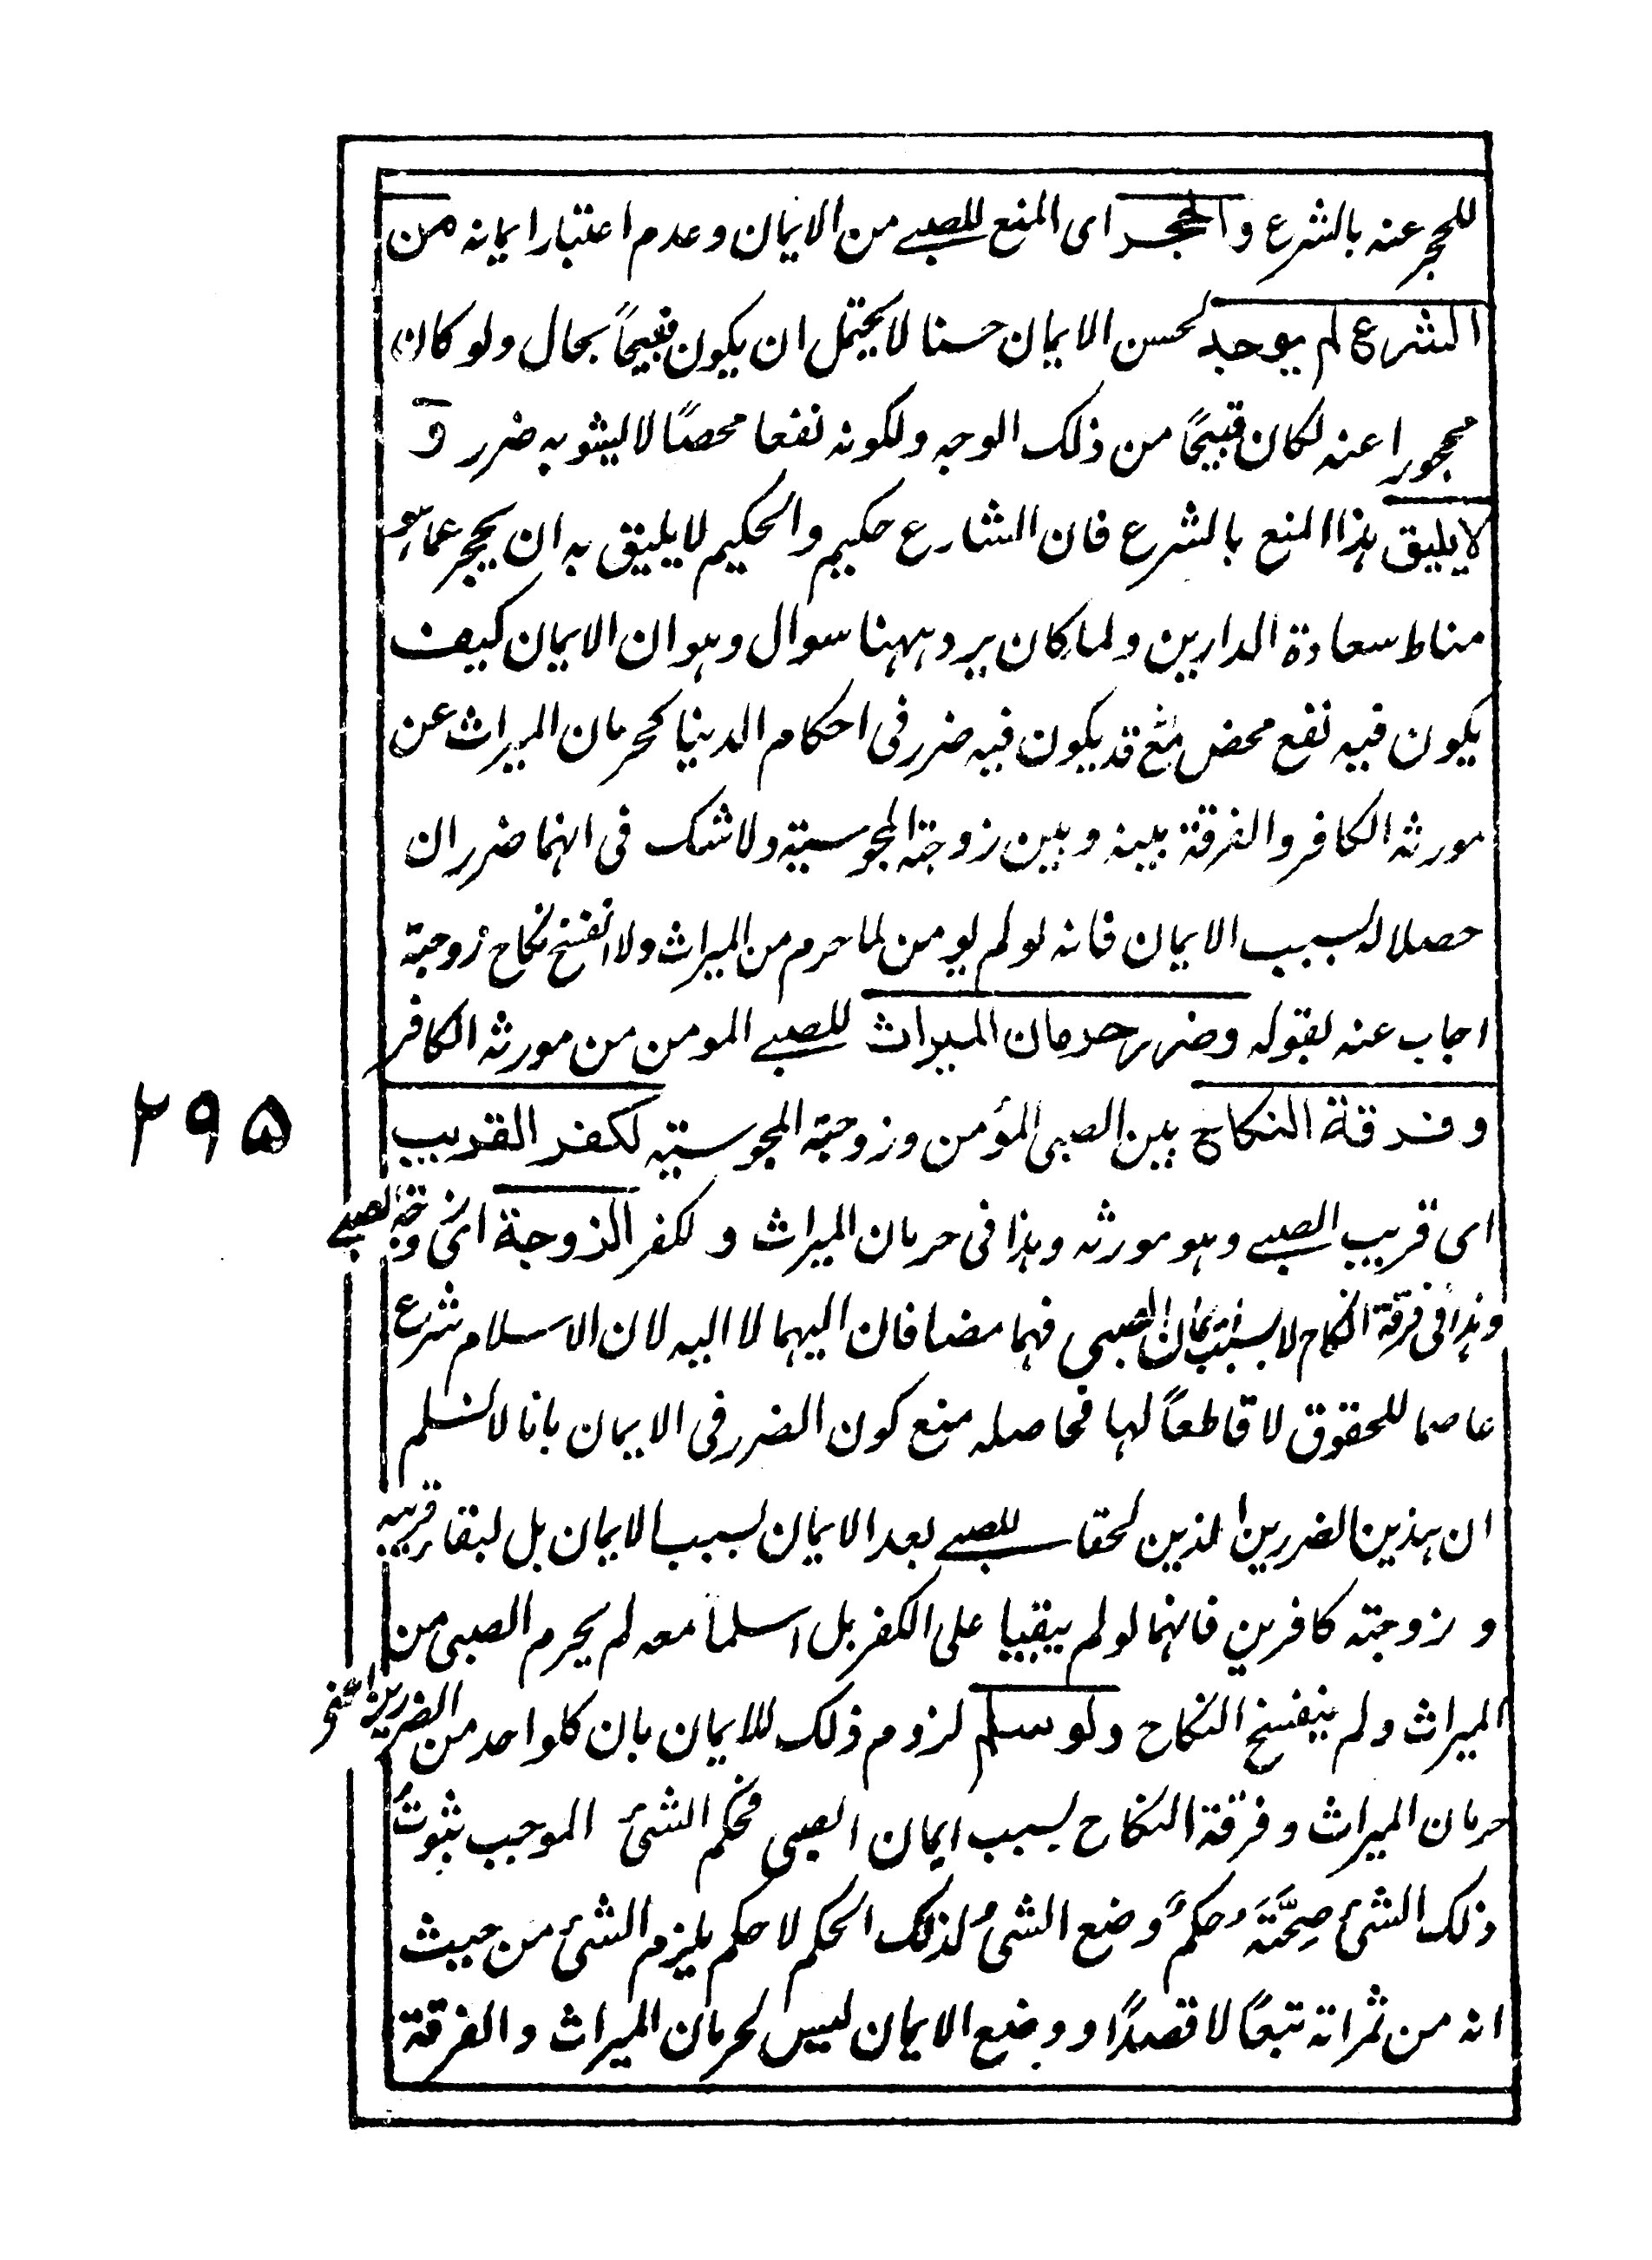 للحجر عنه بالشرع والحجر اى المنع للصبي من الايمان وعدم اعتبار ايمانه من
الشرع لم يوجد لحسن الايمان حسنا لا يحتمل ان يكون قبيحاً بحال ولو كان
محجورا عنه لكان قبيحًا من ذلك الوجه ولكونه نفعا محضًا لا يشوبه ضرر و
لا يليق هذا المنع بالشرع فان الشارع حكيم والحكيم لا يليق به ان يحجر عما هو
مناط سعادة الدارين ولما كان يرد ههنا سوال وهو ان الايمان كيف
يكون فيه نفع محض مع قد يكون فيه ضرر فى احكام الدنيا كحرمان الميراث عن
مورثه الكافر والفرقة بينه وبين زوجته المجوسية ولا شك فى انهما ضرران
حصلا له بسبب الايمان فانه لو لم يومن لما حرم من الميراث ولا انفسخ نكاح زوجته
اجاب عنه بقوله وضرر حرمان الميراث للصبي المومن من مورثه الكافر
وفرقة النكاح بين الصبى المؤمن وزوجته المجوسية لكفر القريب
۲۹۵
اى قريب الصبي وهو مورثه وهذا فى حرمان الميراث و لكفر الزوجة اى زوجة الصبي
وهذا فى فرقة النكاح لا بسبب ايمان الصبى فهما مضافان اليهما لا اليه لان الاسلام شرع
عاصما للحقوق لا قاطعاً لها فحاصله منع كون الضرر فى الايمان بانا لا نسلم
ان هذين الضررين الذين لحقا للصبي بعد الايمان بسبب الايمان بل لبقاء قريبه
و زوجته كافرين فانهما لو لم يبقيا على الكفر بل اسلما معه لم يحرم الصبى من
الميراث ولم ينفسخ النكاح ولو سلم لزوم ذلك للايمان بان كلواحد من الضررين اعنى
حرمان الميراث وفرقة النكاح بسبب ايمان الصبى فحكم الشئ الموجب ثبوتُ
ذلك الشئ صِحَّتَهُ حكمٌ وضع الشئُ لذلك الحكم لا حكم يلزم الشئ من حيث
انه من ثمراته تبعًا لا قصدًا و وضع الايمان ليس لحرمان الميراث والفرقة